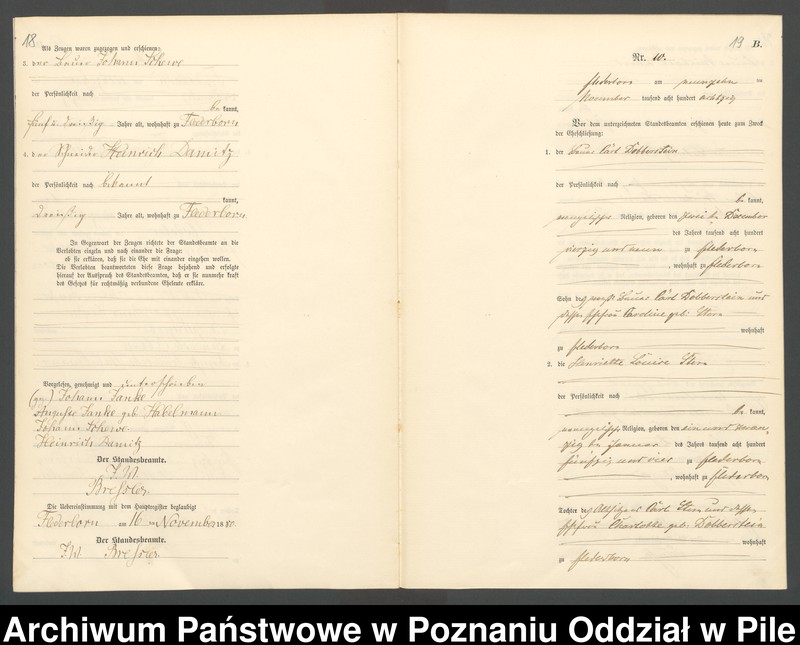 18
Als Zeugen waren zugezogen und erschienen:
3. der Bauer Johann Schewe
der Persönlichkeit nach
be kannt,
fünf u. dreißig Jahre alt, wohnhaft zu Federborn
4. der Schneider Heinrich Damitz
der Persönlichkeit nach bekannt
kannt,
dreißig Jahre alt, wohnhaft zu Federborn
In Gegenwart der Zeugen richtete der Standesbeamte an die
Verlobten einzeln und nach einander die Frage:
ob sie erklären, daß sie die Ehe mit einander eingehen wollen.
Die Verlobten beantworteten diese Frage bejahend und erfolgte
hierauf der Ausspruch des Standesbeamten, daß er sie nunmehr kraft
des Gesetzes für rechtmäßig verbundene Eheleute erkläre.
Vorgelesen, genehmigt und unterschrieben
(gez.) Johann Janke
Auguste Janke geb. Habelmann
Johann Schewe
Heinrich Damitz
Der Standesbeamte.
J.W.
Die Uebereinstimmung mit dem Hauptregister beglaubigt
Federborn am 10 ten November 1880.
Der Standesbeamte.
J.W.
19 B.
Nr. 10.
Flederborn am neunzehn ten
November tausend acht hundert achtzig
Vor dem unterzeichneten Standesbeamten erschienen heute zum Zweck
der Eheschließung:
1. der Bauer Carl Dobberstein
der Persönlichkeit nach
be kannt,
evangelischer Religion, geboren den zwei ten Dezember
des Jahres tausend acht hundert
vierzig und neun zu Flederborn
, wohnhaft zu Flederborn
Sohn des Bauer Carl Dobberstein und
dessen Ehefrau Caroline geb. Stern
wohnhaft
zu Flederborn
2. die Henriette Louise Stern
der Persönlichkeit nach
be kannt,
evangelischer Religion, geboren den ein und zwan-
zig ten Januar des Jahres tausend acht hundert
fünfzig und vier zu Flederborn
, wohnhaft zu Flederborn
Tochter des Altsitzers Carl Stern und dessen
Ehefrau Charlotte geb. Dobberstein
wohnhaft
zu Flederborn
Archiwum Państwowe w Poznaniu Oddział w Pile